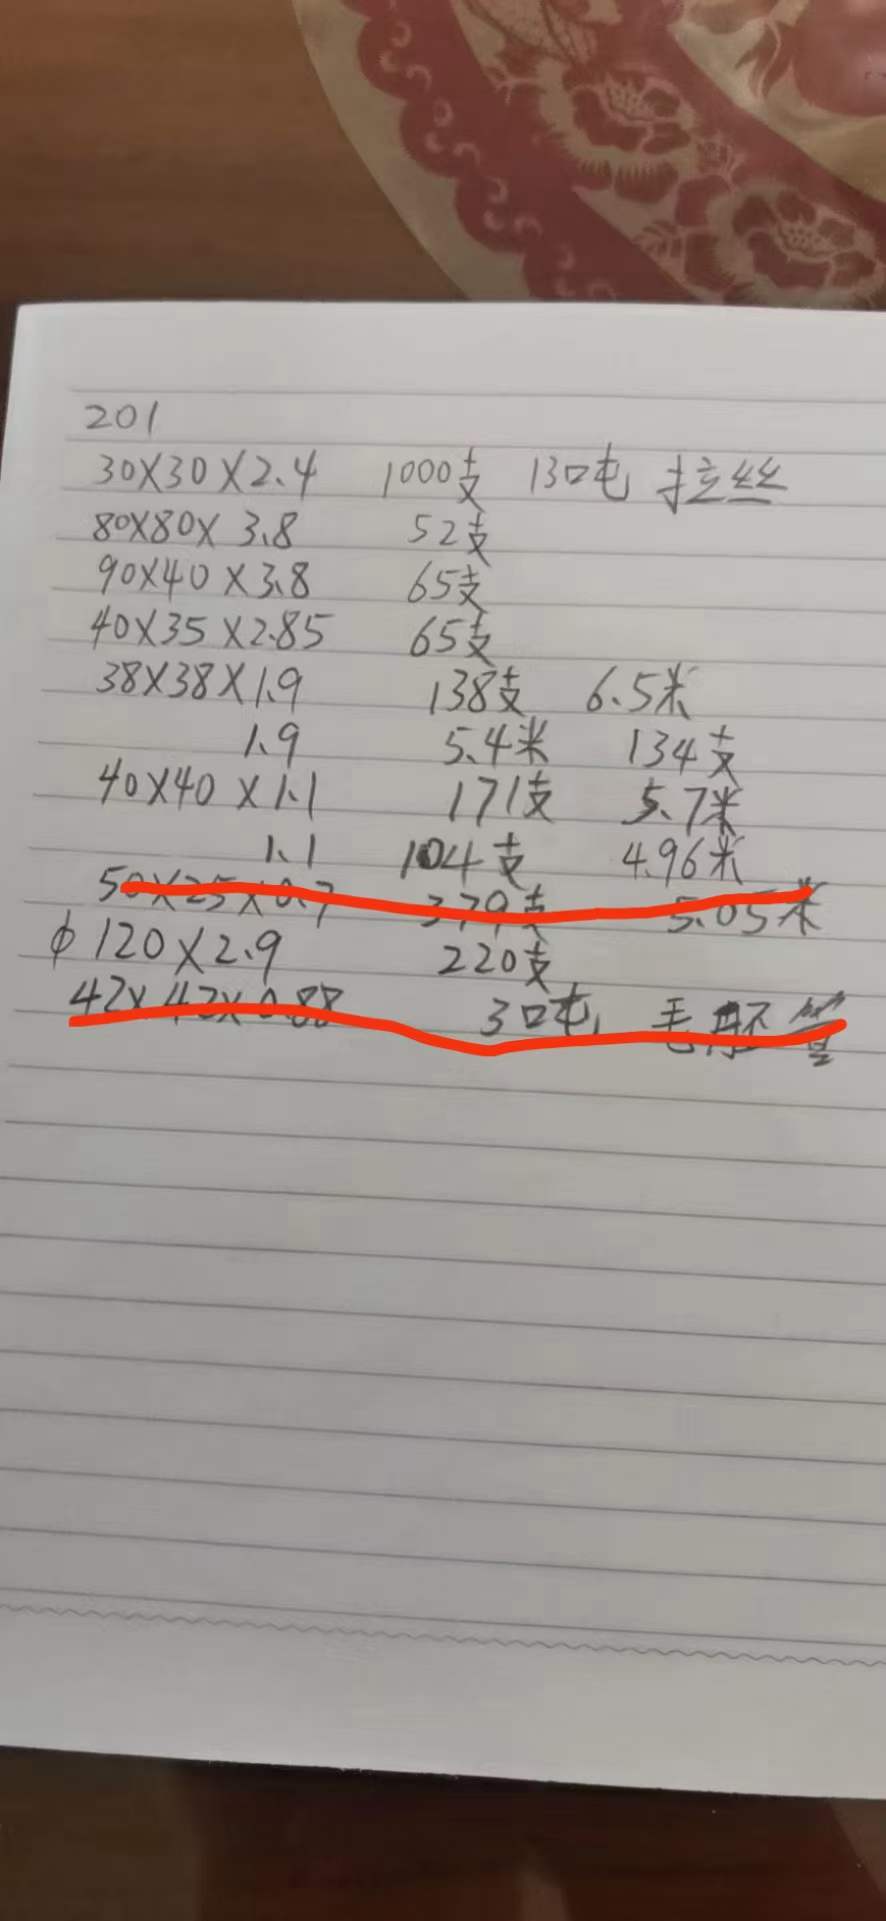 201
30X30X2.4 1000支 13吨 拉丝
80X80X3.8 52支
90X40X3.8 65支
40X35X2.85 65支
38X38X1.9 138支 6.5米
1.9 5.4米 134支
40X40X1.1 171支 5.7米
1.1 104支 4.96米
50X25X0.7 379支 5.05米
φ120X2.9 220支
42X42X0.88 3吨 毛胚管